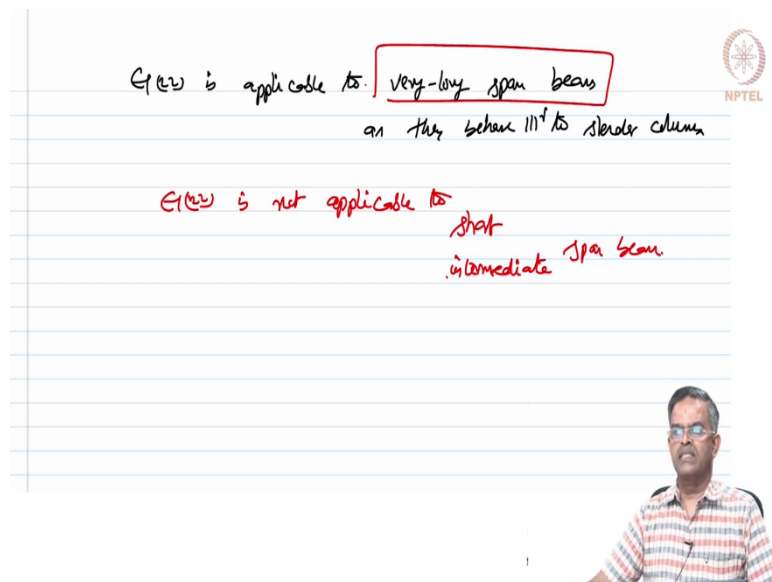 Eq(22) is applicable to very-long span beams
as they behave |||r to slender column
NPTEL
Eq(22) is not applicable to
short
intermediate span beam.